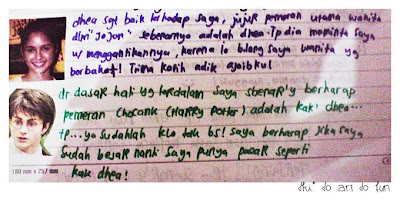 dhea sgt baik terhadap saya, jujur pemeran utama wanita
dlm "Jojon" sebenarnya adalah dhea. Tp dia meminta saya
u/ menggantikannya, karena io bilang saya wanita yg
berbakat! Trima kasih adik ajaibku!
dr dasar hati yg terdalam saya sbenar'y berharap
pemeran CHOCANK (HARRY POTTER) adalah kak' dhea...
tp...ya sudahlah klo tak bs! saya berharap jika saya
sudah besar nanti saya punya pacar seperti
kak dhea!
180 mm x 257 mm
do art do fun